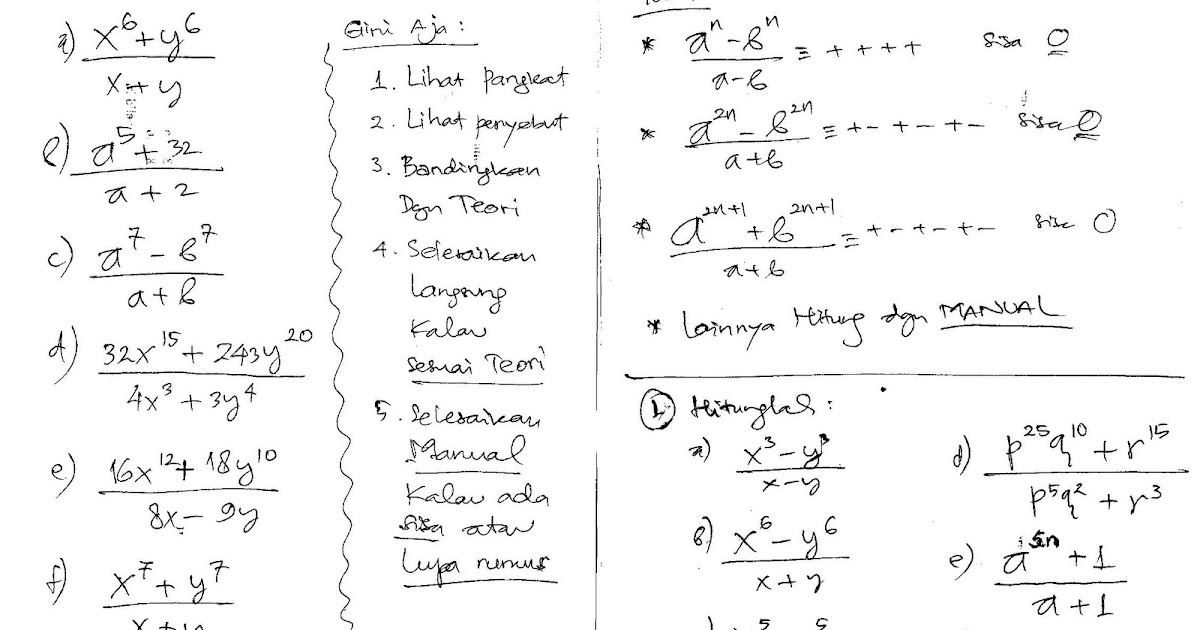 a) x^6 + y^6 / x + y
b) a^5 + 32 / a + 2
c) a^7 - b^7 / a + b
d) 32x^15 + 243y^20 / 4x^3 + 3y^4
e) 16x^12 + 18y^10 / 8x - 9y
f) x^7 + y^7 / x + y
Gini Aja :
1. Lihat Pangkat
2. Lihat penyebut
3. Bandingkan
Dgn Teori
4. Selesaikan
Langsung
Kalau
sesuai Teori
5. Selesaikan
Manual
Kalau ada
sisa atau
Lupa rumus
* a^n - b^n / a - b ≡ + + + + sisa 0
* a^2n - b^2n / a + b ≡ + - + - + - sisa 0
* a^2n+1 + b^2n+1 / a + b ≡ + - + - + - sisa 0
* Lainnya Hitung dgn MANUAL
1. Hitunglah :
a) x^3 - y^3 / x - y
b) x^6 - y^6 / x + y
d) p^25 q^10 + r^15 / p^5 q^2 + r^3
e) a^5n + 1 / a + 1